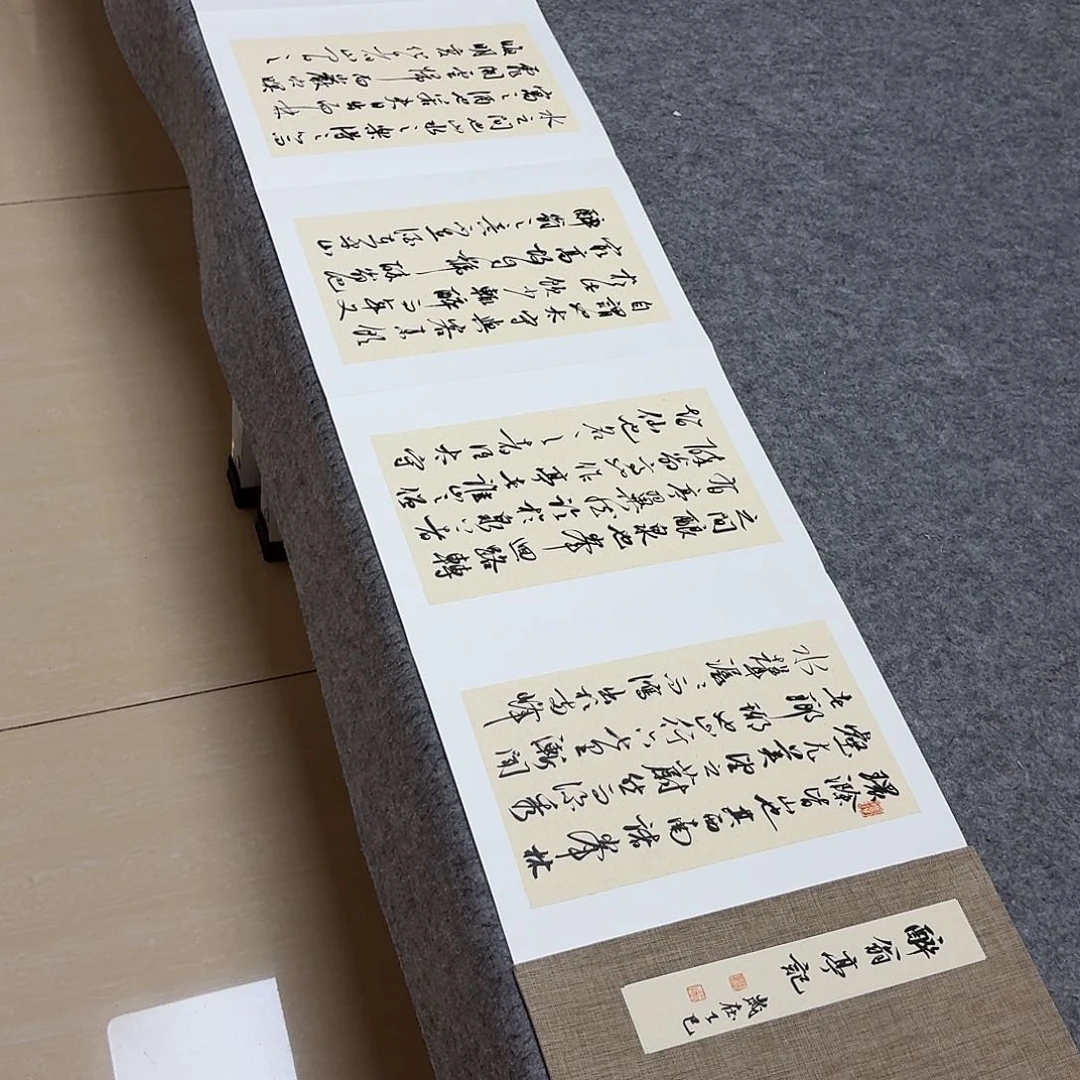 醉翁亭記
歲在乙巳
環滁皆山也其西南諸峰林
壑尤美望之蔚然而深秀
者瑯琊也山行六七里漸聞
水聲潺〻而瀉出於兩峰
之間釀泉也峰回路轉
有亭翼然臨於泉上者
醉翁亭也作亭者誰山之僧
智仙也名之者誰太守
自謂也太守與客來飲
於此飲少輒醉而年又
最高故自號曰醉翁也
醉翁之意不在酒在乎山
水之間也山水之樂得之心而
寓之酒也若夫日出而林
霏開雲歸而巖穴暝
晦明變化者山間之